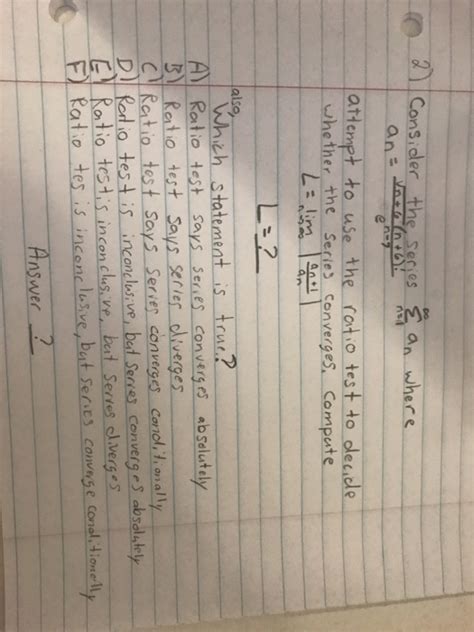 2) Consider the series ∞Σn=1 an where
an = √n+6 (n+6)! / e^n-9
attempt to use the ratio test to decide
whether the series converges. Compute
L = lim n→∞ | an+1 / an |
L = ?
also,
Which statement is true?
A) Ratio test says series converges absolutely
B) Ratio test says series diverges
C) Ratio test says series converges conditionally
D) Ratio test is inconclusive, but series converges absolutely
E) Ratio test is inconclusive, but series diverges
F) Ratio tes is inconclusive, but series converge conditionally
Answer ?